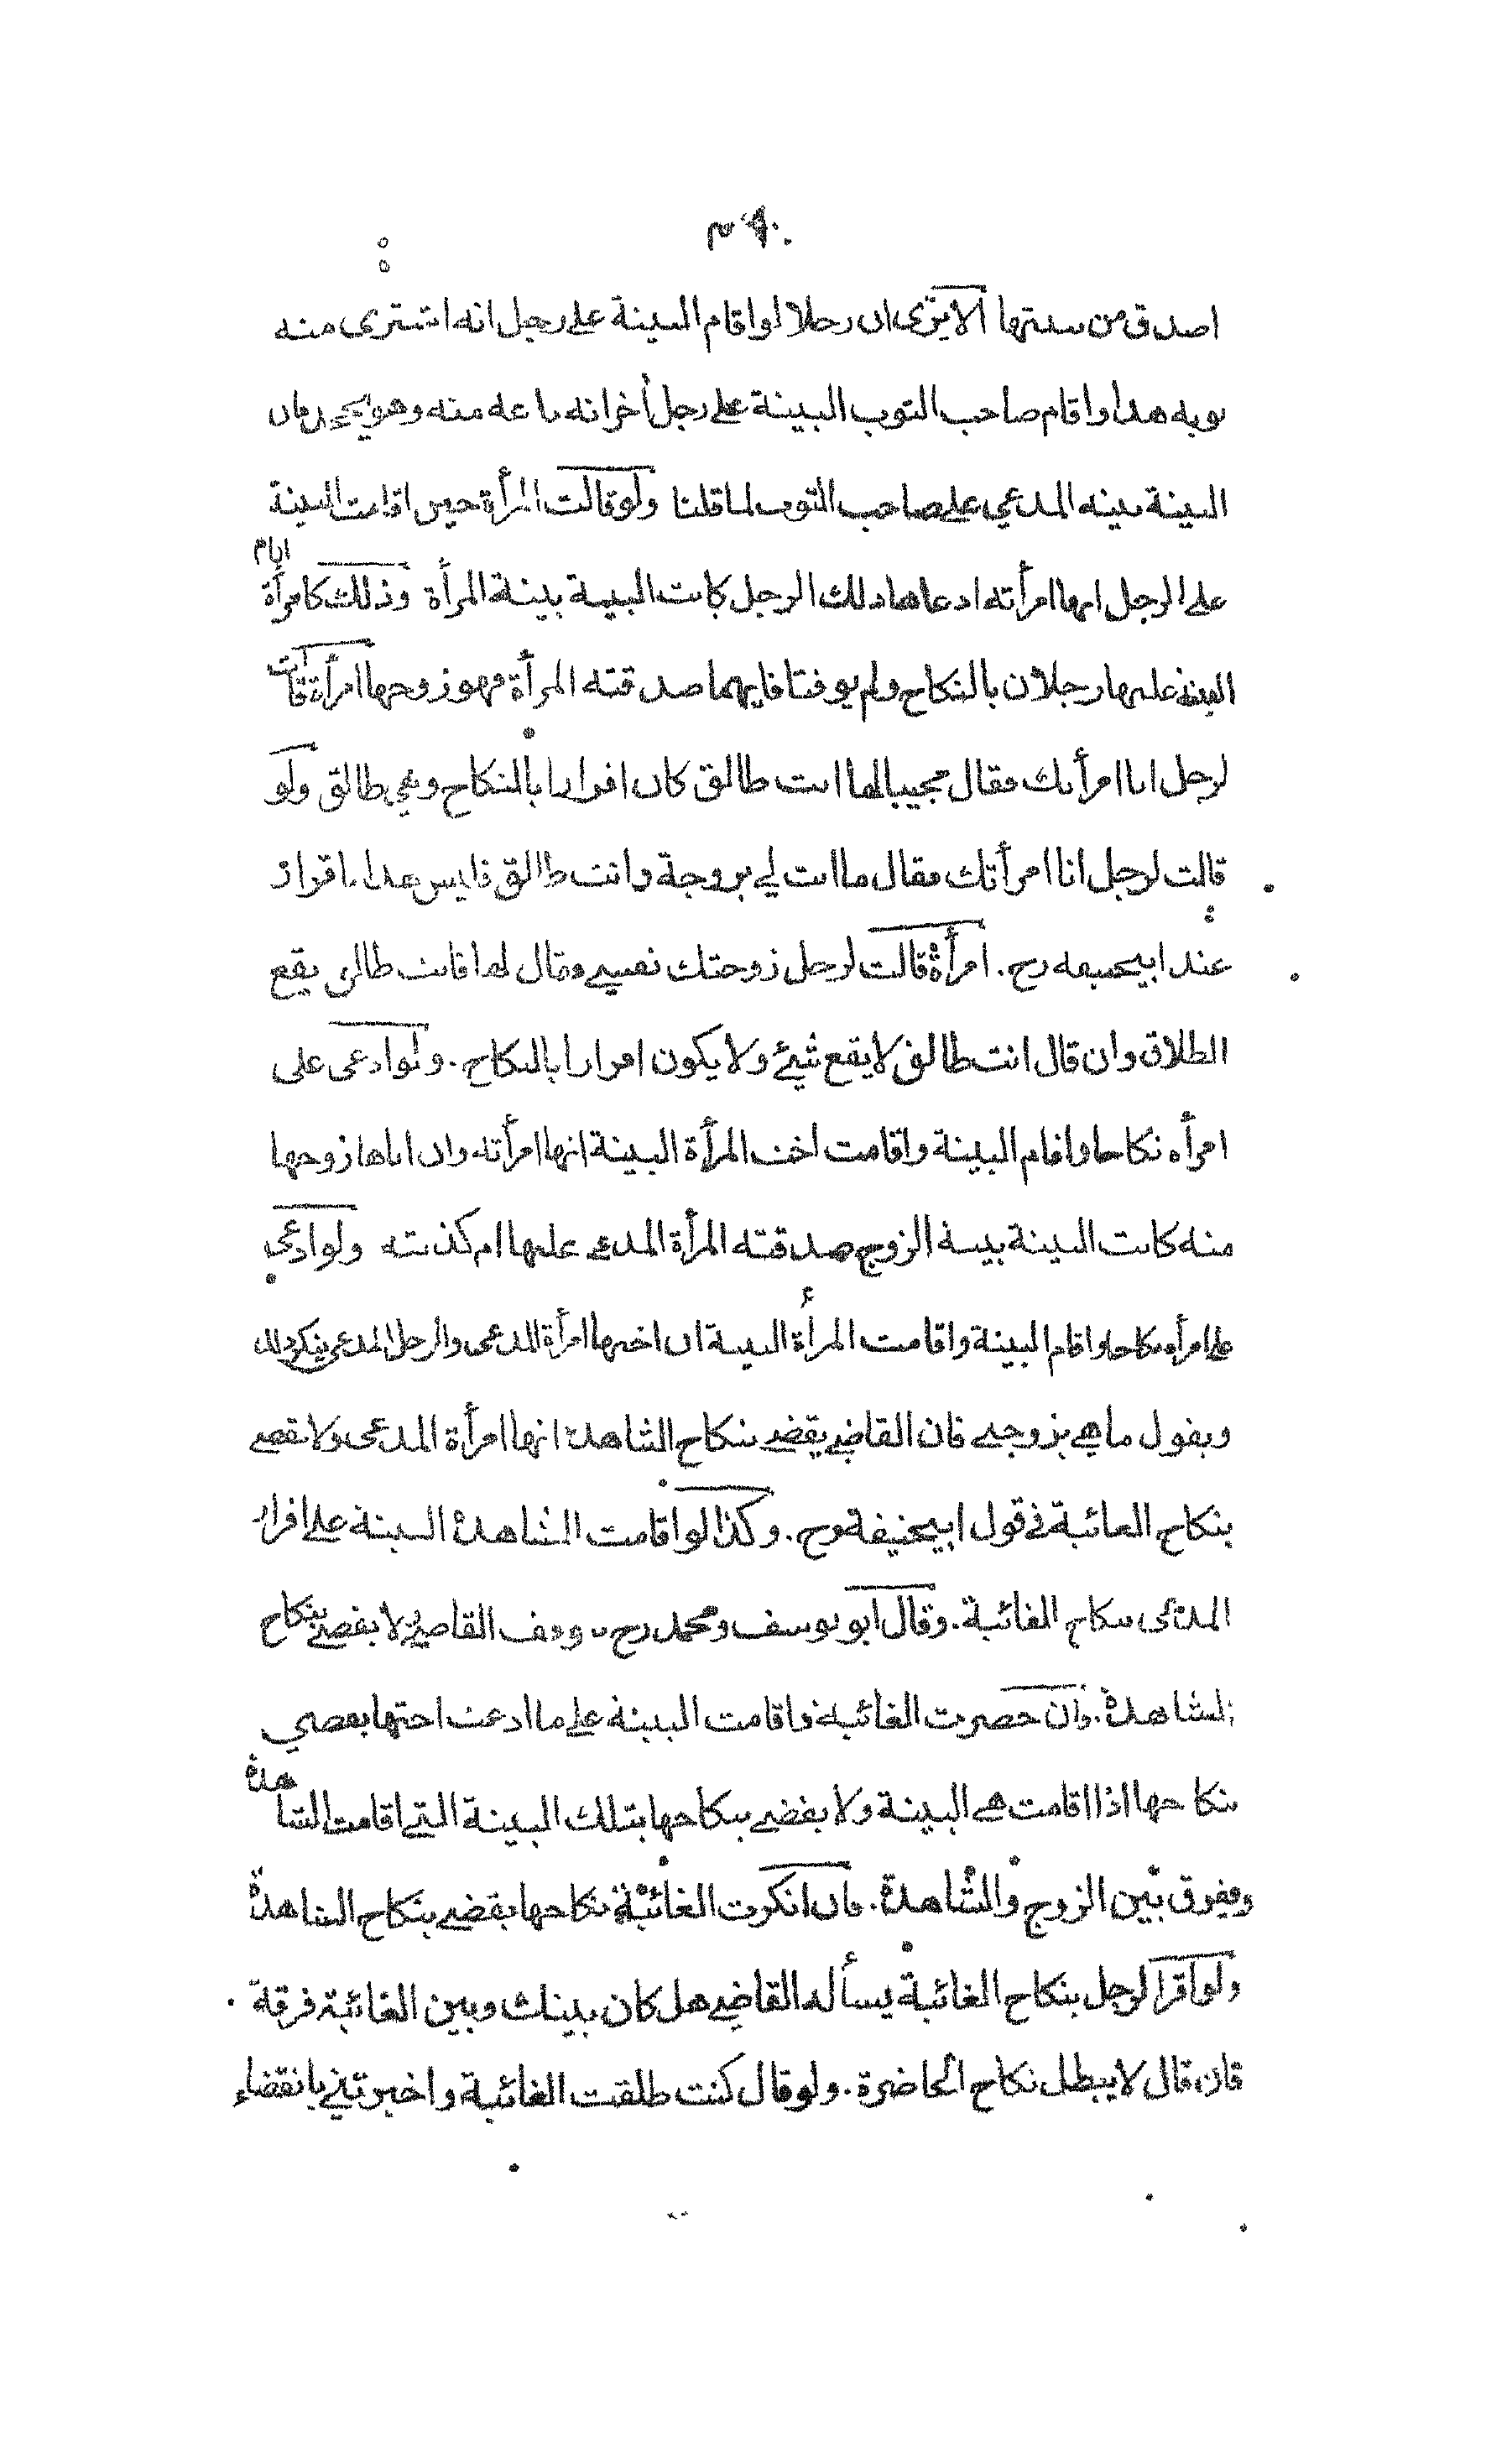 اصدق من بينتها الا يرى ان رجلا لو اقام البينة على رجل انه اشترى منه
ثوبه هذا واقام صاحب الثوب البينة على رجل أخر انه باعه منه وهو يجحد فان
البينة بينة المدعي على صاحب الثوب لما قلنا ولو قالت المرأة حين اقامت البينة
على الرجل انها امرأته ادعاها ذلك الرجل كانت البينة بينة المرأة وكذلك امرأة اقام
البينة عليها رجلان بالنكاح ولم يوقتا فايهما صدقته المرأة فهو زوجها امرأة قالت
لرجل انا امرأتك فقال مجيبا لها انت طالق كان اقرارا بالنكاح وهي طالق ولو
قالت لرجل انا امرأتك فقال ما انت لي بزوجة وانت طالق فليس هذا باقرار
عند ابيحنيفه رح. امرأة قالت لرجل زوجتك نفسي فقال لها فانت طالق يقع
الطلاق وان قال انت طالق لا يقع شيئ ولا يكون اقرارا بالنكاح. ولو ادعى على
امرأه نكاحا واقام البينة واقامت اخت المرأة البينة انها امرأته وان اباها زوجها
منه كانت البينة بينة الزوج صدقته المرأة المدعى عليها ام كذبته ولو ادعى
على امرأه نكاحا واقام البينة واقامت المرأة البينة ان اختها امرأة المدعى والرجل المدعى ينكر ذلك
ويقول ما هي بزوجتي فان القاضي يقضي بنكاح الشاهدة انها امرأة المدعى ولا يقضي
بنكاح الغائبة في قول ابيحنيفة رح. وكذا لو اقامت الشاهدة البينة على اقرار
المدعى بنكاح الغائبة. وقال ابو يوسف ومحمد رح يوقف القاضي لا يقضي بنكاح
الشاهدة. فان حضرت الغائبة واقامت البينة على ما ادعت اختها يقضي
بنكاحها اذا اقامت هي البينة ولا يقضي بنكاحها بتلك البينة التي اقامت الشاهدة
ويفرق بين الزوج والشاهدة. فان انكرت الغائبة نكاحها يقضي بنكاح الشاهدة
ولو اقر الرجل بنكاح الغائبة يسأله القاضي هل كان بينك وبين الغائبة فرقة
فان قال لا يبطل نكاح الحاضرة. ولو قال كنت طلقت الغائبة واخبرتني بانقضاء